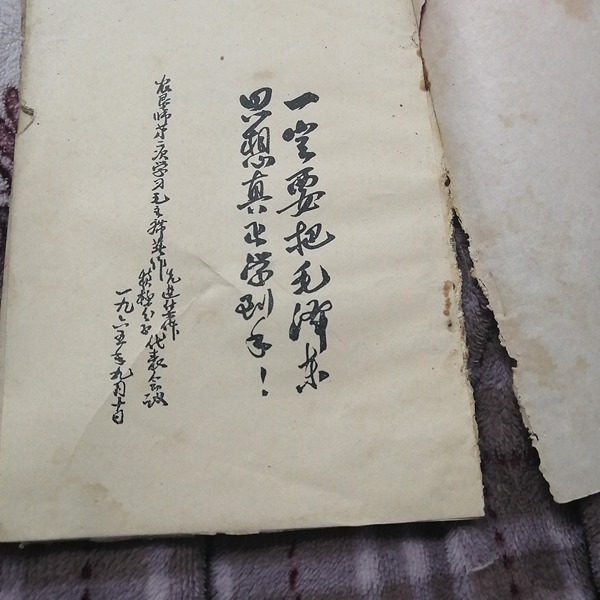 一定要把毛泽东
思想真正学到手！
农垦师第二次学习毛主席著作
先进工作
积极分子
代表会议
一九六五年九月十日